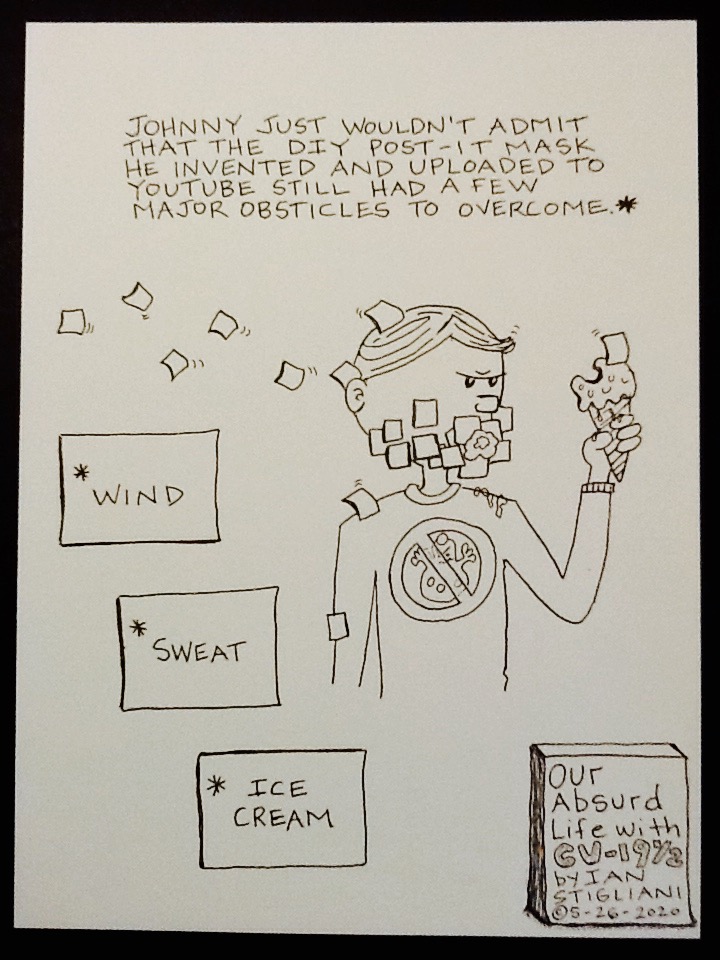 JOHNNY JUST WOULDN'T ADMIT
THAT THE DIY POST-IT MASK
HE INVENTED AND UPLOADED TO
YOUTUBE STILL HAD A FEW
MAJOR OBSTICLES TO OVERCOME.*
* WIND
* SWEAT
* ICE
CREAM
Our
Absurd
Life with
CV-19½
by IAN
STIGLIANI
©5-26-2020